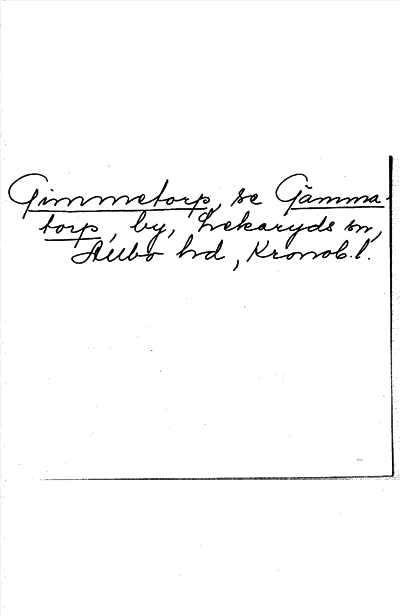 Gimmetorp, se Gämma-
torp, by, Lekaryds sn,
Allbo hd, Kronob. l.